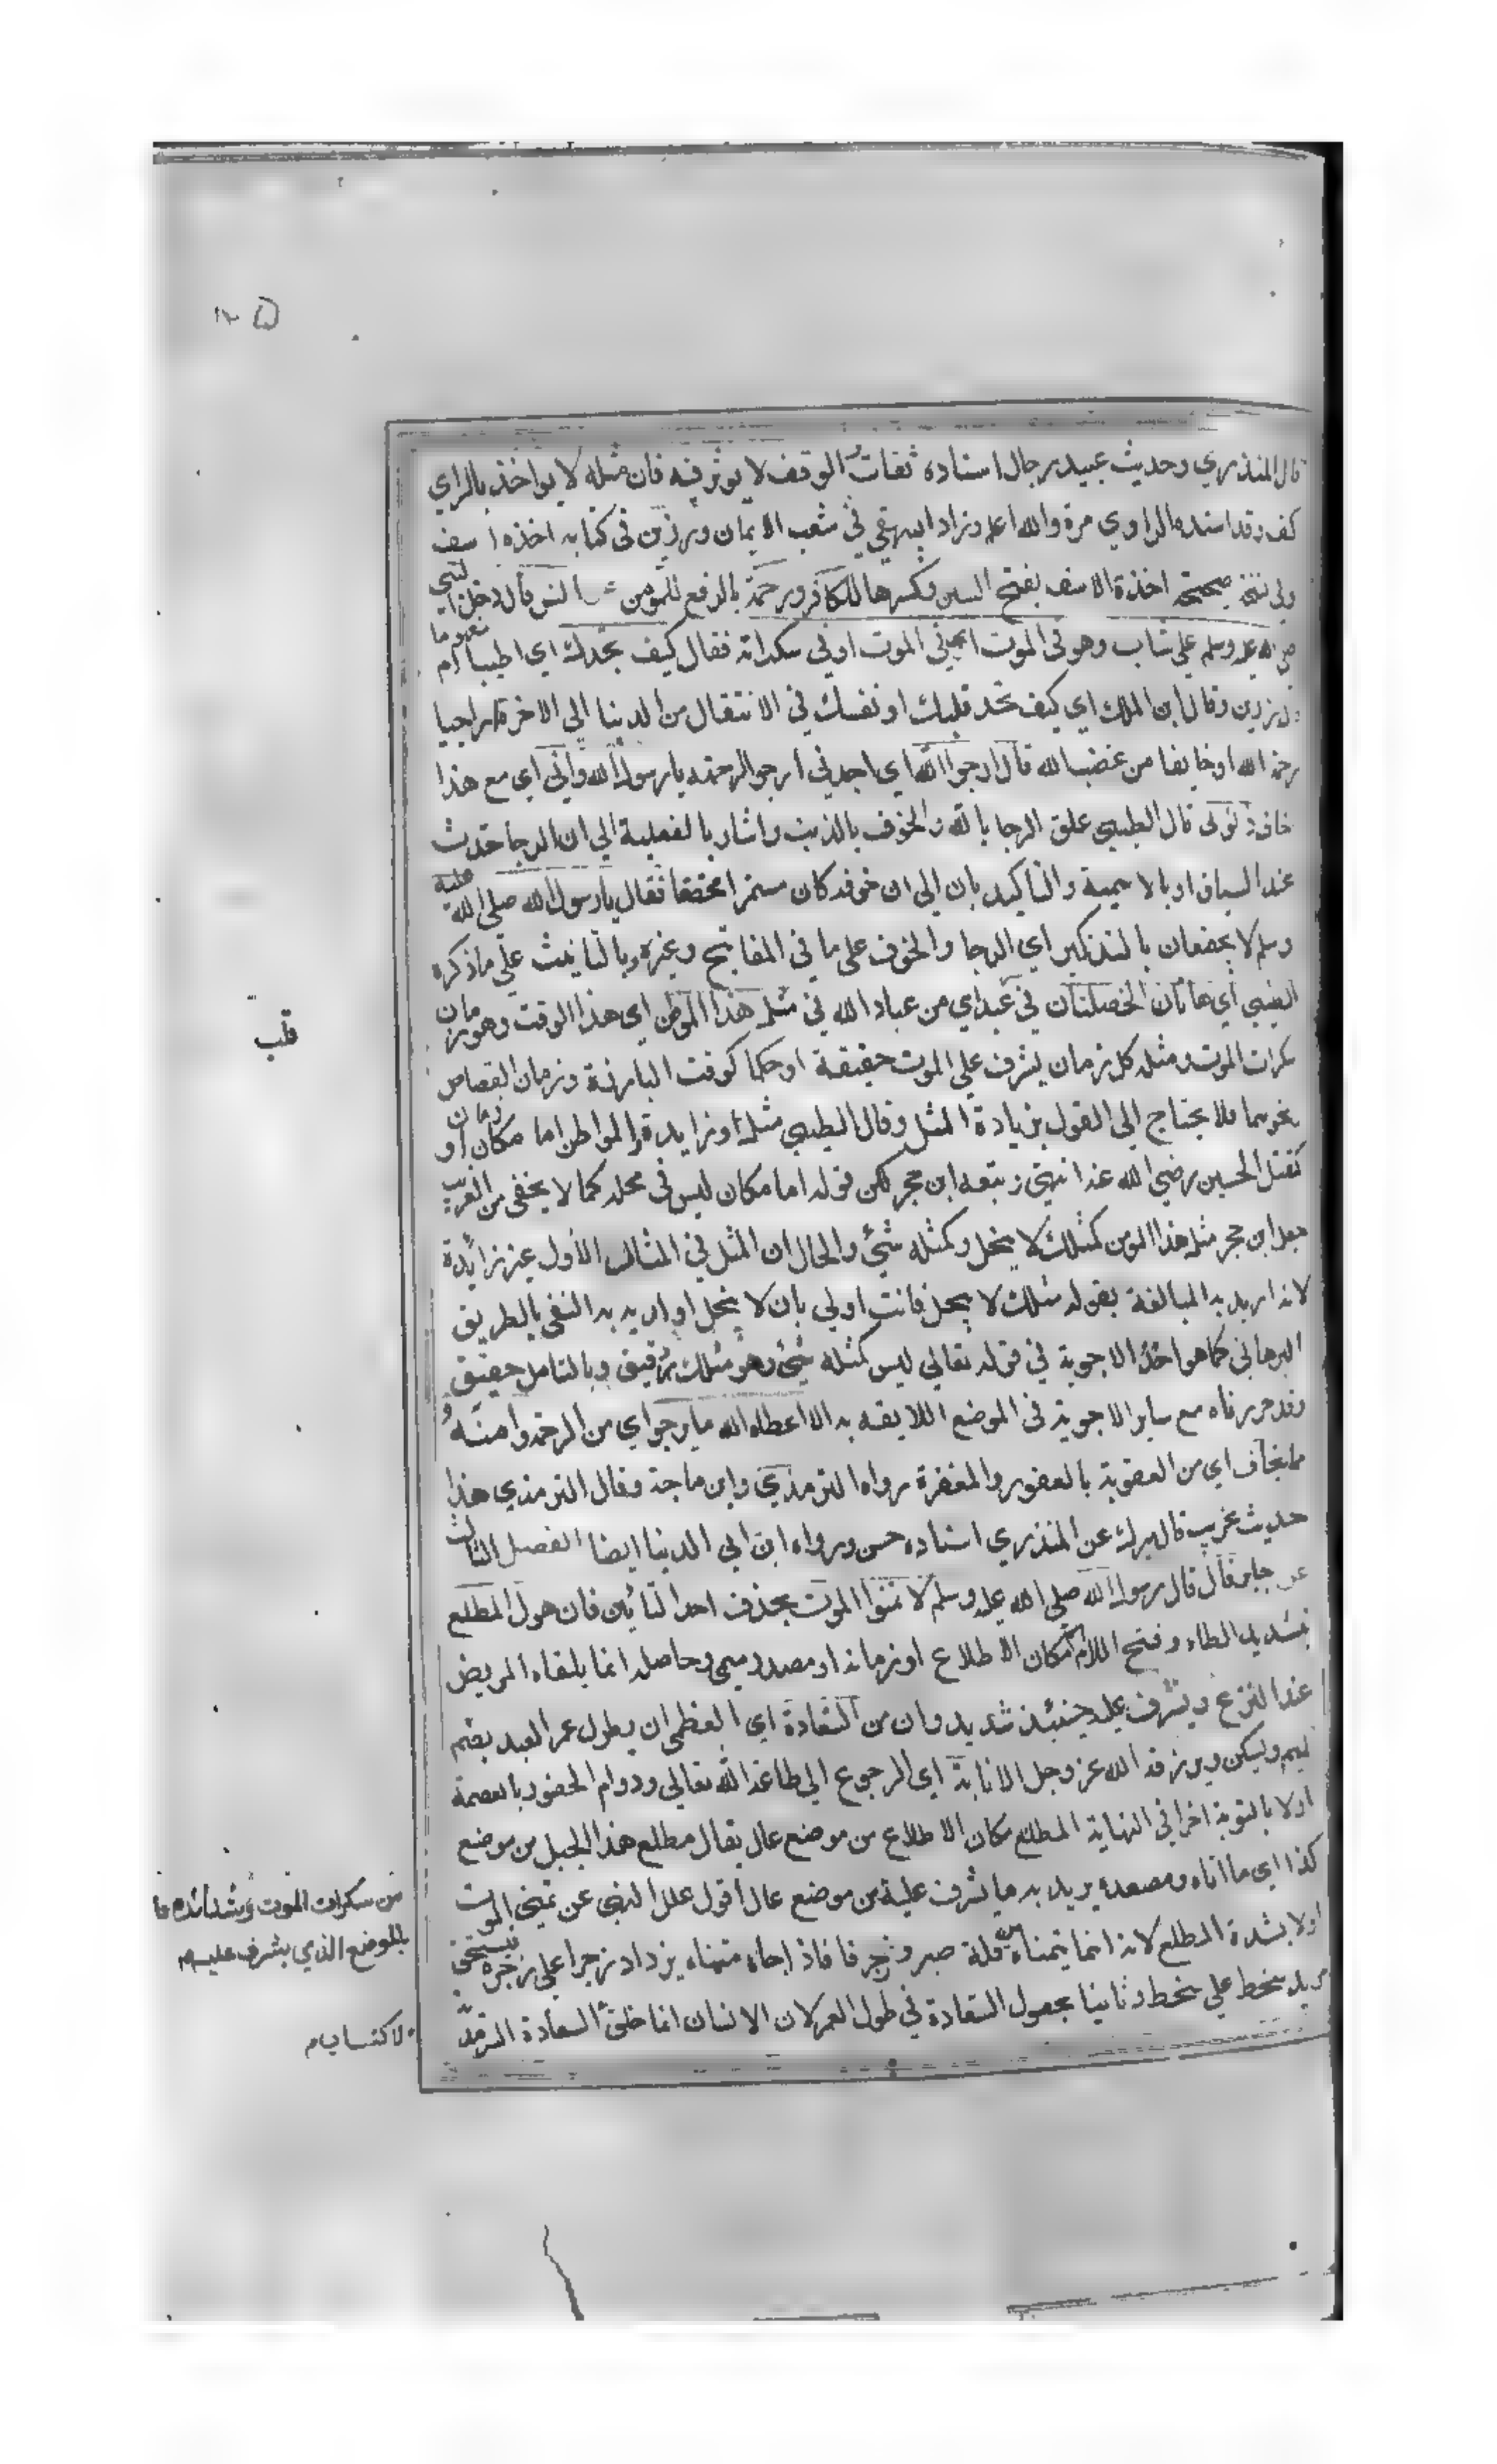 قال المنذري وحديث عبيد رجال اسناده ثقات الوقف لا يوثر فيه فان مثله لا يواخذ بالراي
كيف وقد اسنده الراوي مرة والله اعلم وزاد البيهقي في شعب الايمان ورزين في كتابه اخذه اسف
وفي نسخة صحيحة اخذة الاسف بفتح السين وكسرها للكافر ورحمة بالرفع للمومن انس قال دخل النبي
صلى الله عليه وسلم على شاب وهو في الموت اي في الموت او في سكراته فقال كيف تجدك اي اطيبا ام مغموما
رزين وقال ابن الملك اي كيف تجد قلبك او نفسك في الانتقال من الدنيا الي الاخرة راجيا
رحمة الله او خايفا من غضب الله قال ارجوا الله اي اجدني ارجو الرحمة يا رسول الله واني اي مع هذا
اخاف ذنوبي قال الطيبي علق الرجا بالله والخوف بالذنب واشار بالفعلية الي ان الرجا حدث
عند السياق او بالاسمية والتاكيد بان الي ان خوفه كان مستمرا محققا فقال يا رسول الله صلى الله عليه
وسلم لا يجتمعان بالتذكير اي الرجا والخوف على ما في المفاتيح وغيره وبالتانيث علي ما ذكره
الطيبي اي هاتان الخصلتان في عبد اي من عباد الله في مثل هذا الموطن اي هذا الوقت وهو زمان
سكرات الموت ومثله كل زمان يشرف علي الموت حقيقة او حكما كوقت البارزة وزمان القصاص
نحوهما فلا يحتاج الى القول بزيادة المثل وقال الطيبي مثله او زايد والمواطن اما مكان او زمان
كمقتل الحسين رضي الله عنه انتهى وتبعه ابن حجر لكن قوله اما مكان ليس في محله كما لا يخفى من الغريب
جعل ابن حجر مثل هذا المومن كمثلك لا يبخل وكمثله شيئ والحال ان المثل في المثال الاول غير زايدة
لانه اريد به المبالغة بقوله مثلك لا يبخل فانت اولي بان لا يبخل او اريد به النفي بالطريق
البرهاني كما هو احد الاجوبة في قوله تعالي ليس كمثله شيئ وهو مسلك دقيق وبالتامل حقيق
وقد حررناه مع ساير الاجوبة في الموضع اللايق به الا اعطاه الله ما يرجو اي من الرحمة وامنه
مما يخاف اي من العقوبة بالعفو والمغفرة رواه الترمذي وابن ماجة وقال الترمذي هذا
حديث غريب قال ميرك عن المنذري اسناده حسن ورواه ابن ابي الدنيا ايضا الفصل الثالث
عن جابر قال قال رسول الله صلى الله عليه وسلم لا تمنوا الموت بحذف احد التائين فان هول المطلع
بتشديد الطاء وفتح اللام مكان الاطلاع او زمانه او مصدر ميمي وحاصله انما يلقاه المريض
عند النزع ويشرف عليه حينئذ شديد وان من السعادة اي العظمى ان يطول عمر العبد بضم
الميم وتسكن ويرزقه الله عز وجل الانابة اي الرجوع الي طاعة الله تعالي ودوام الحضور بالعصمة
اولا بالتوبة اخرا في النهاية المطلع مكان الاطلاع من موضع عال يقال مطلع هذا الجبل من موضع
كذا اي ماتاه ومصعده يريد به ما يشرف عليه من موضع عال اقول علل النهي عن تمني الموت
اولا بشدة المطلع لانه انما يتمناه من قلة صبر وضجر فاذا جاء متمناه يزداد ضجرا علي ضجره فيستحق
مزيد سخط علي سخط وثانيا بحصول السعادة في طول العمر لان الانسان انما خلق السعادة السرمد
قلب
من سكرات الموت وشدائده ما
بالموضع الذي يشرف عليه م
لاكتساب م